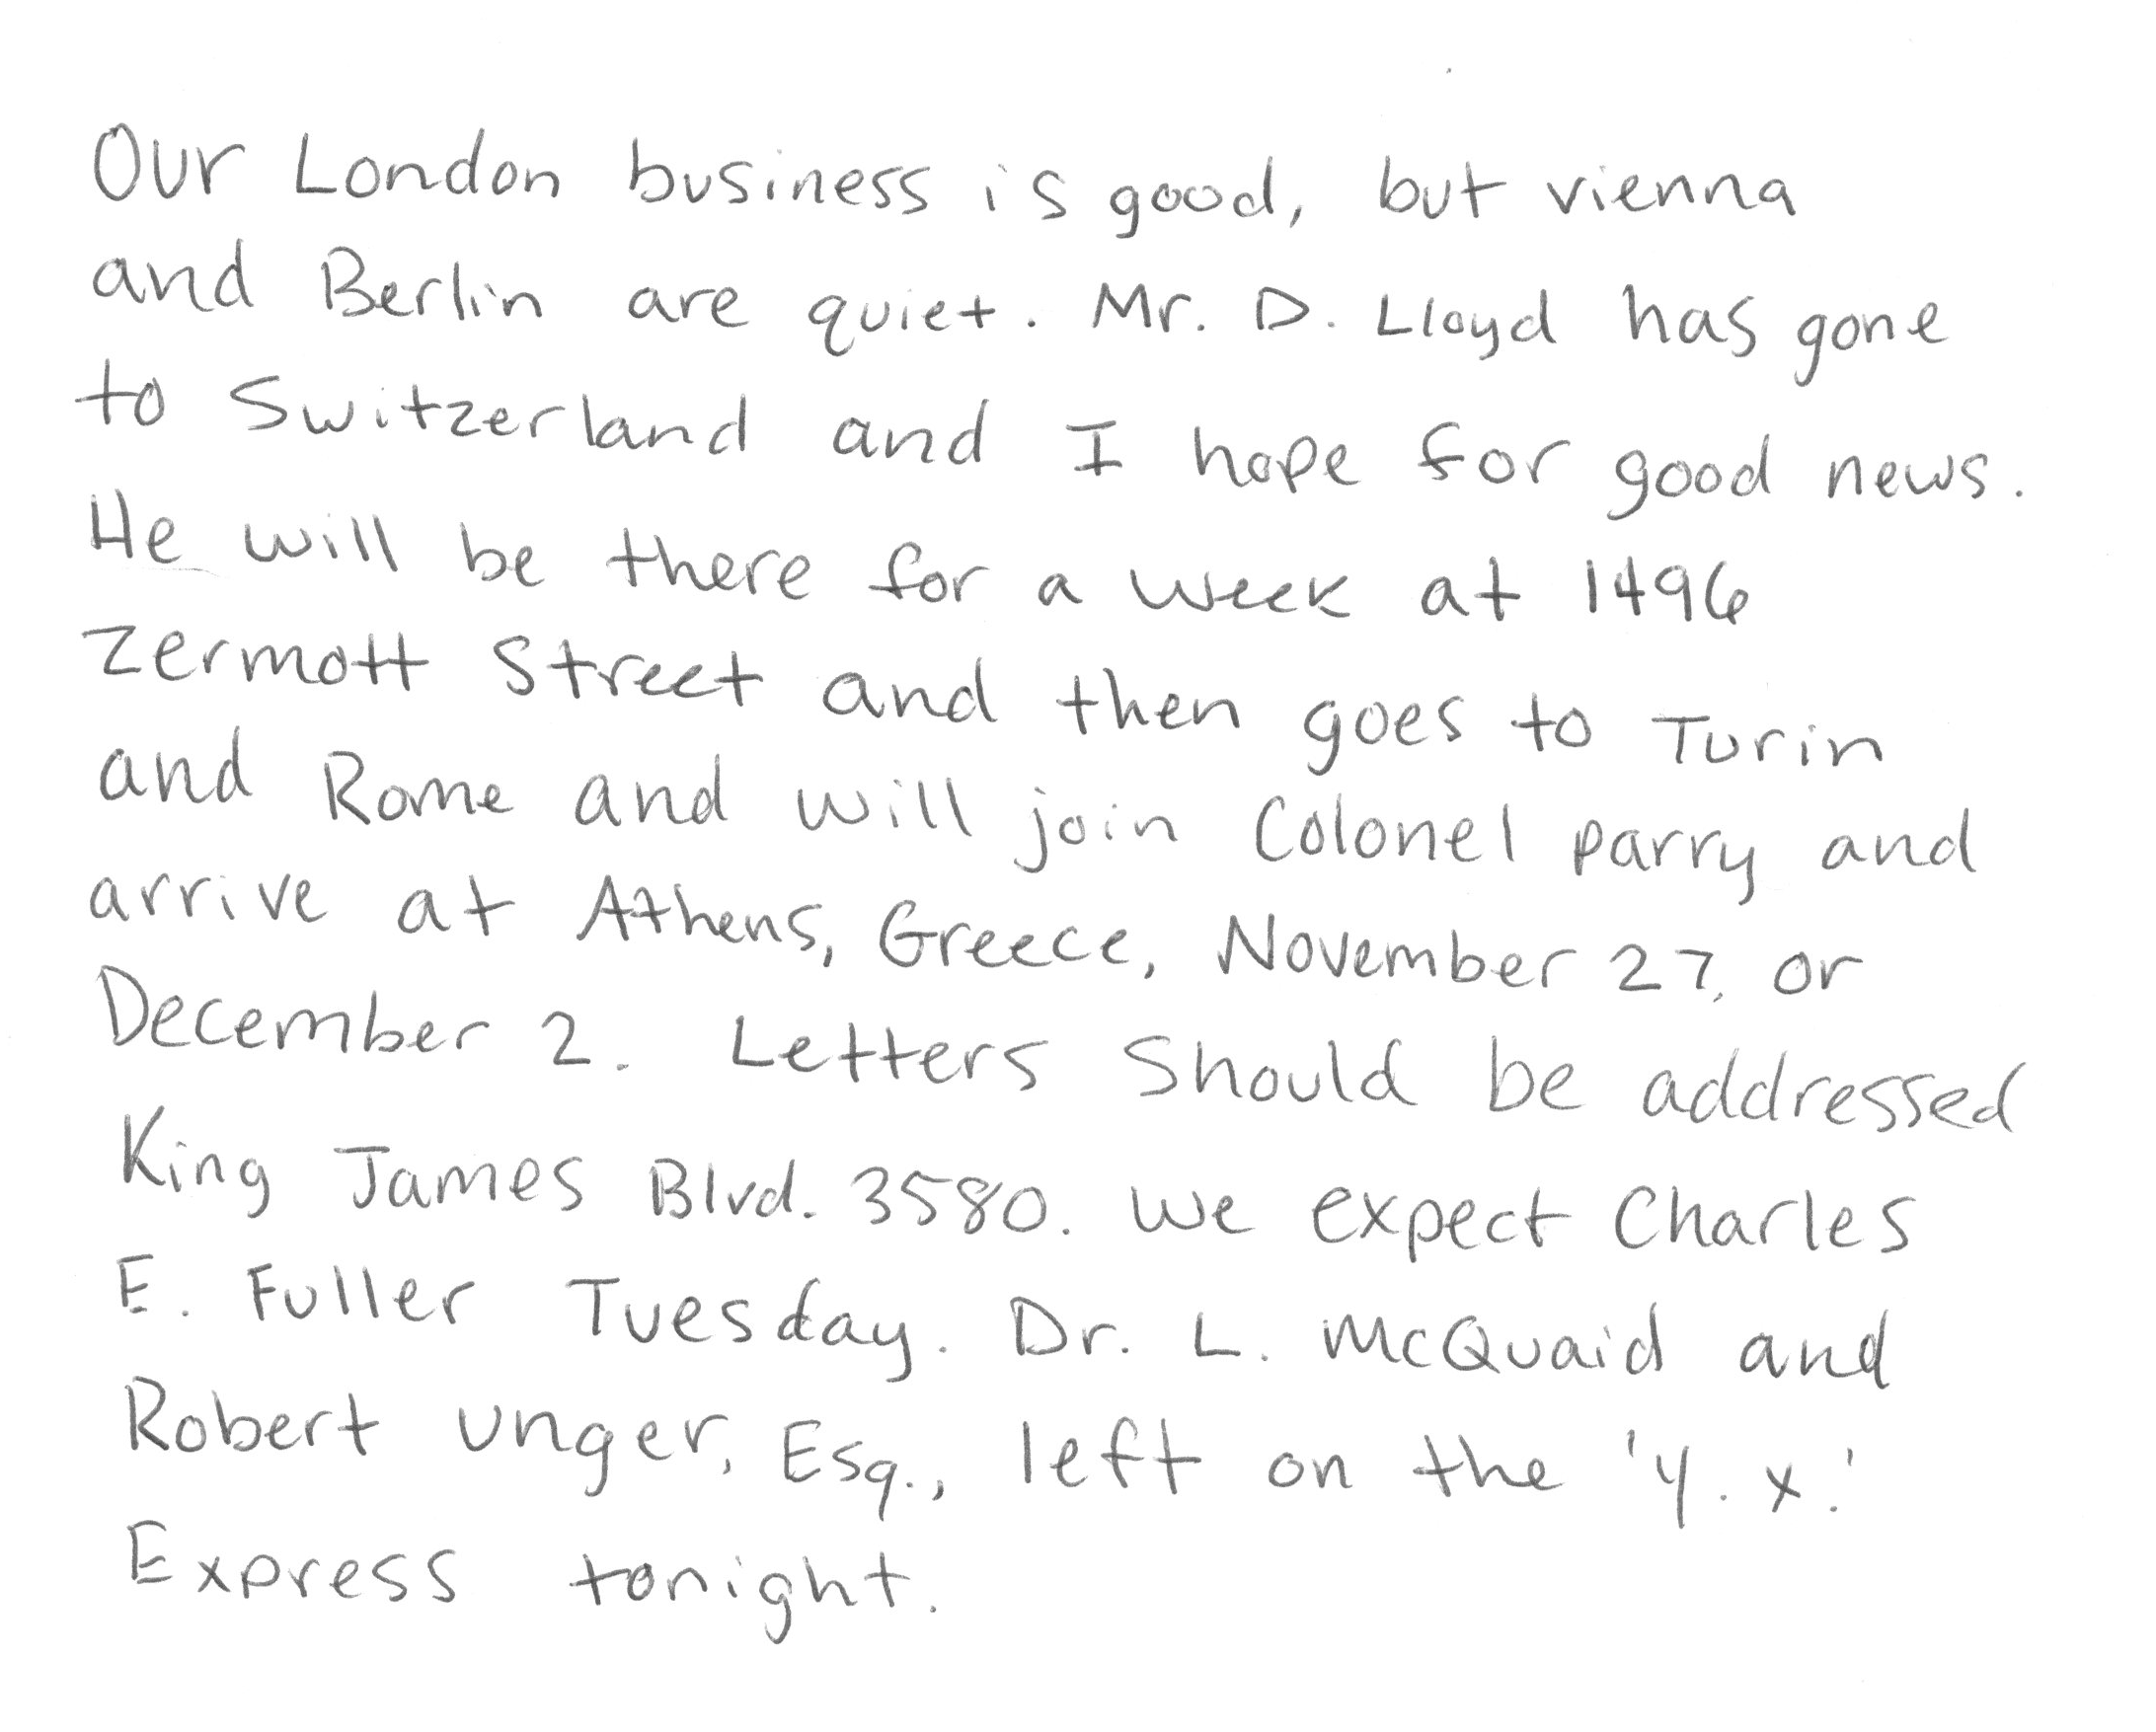 Our London business is good, but vienna
and Berlin are quiet. Mr. D. Lloyd has gone
to Switzerland and I hope for good news.
He will be there for a week at 1496
Zermott Street and then goes to Turin
and Rome and will join Colonel Parry and
arrive at Athens, Greece, November 27, or
December 2. Letters Should be addressed
King James Blvd. 3580. We expect Charles
E. Fuller Tuesday. Dr. L. McQuaid and
Robert Unger, Esq., left on the 'Y. X.'
Express tonight.